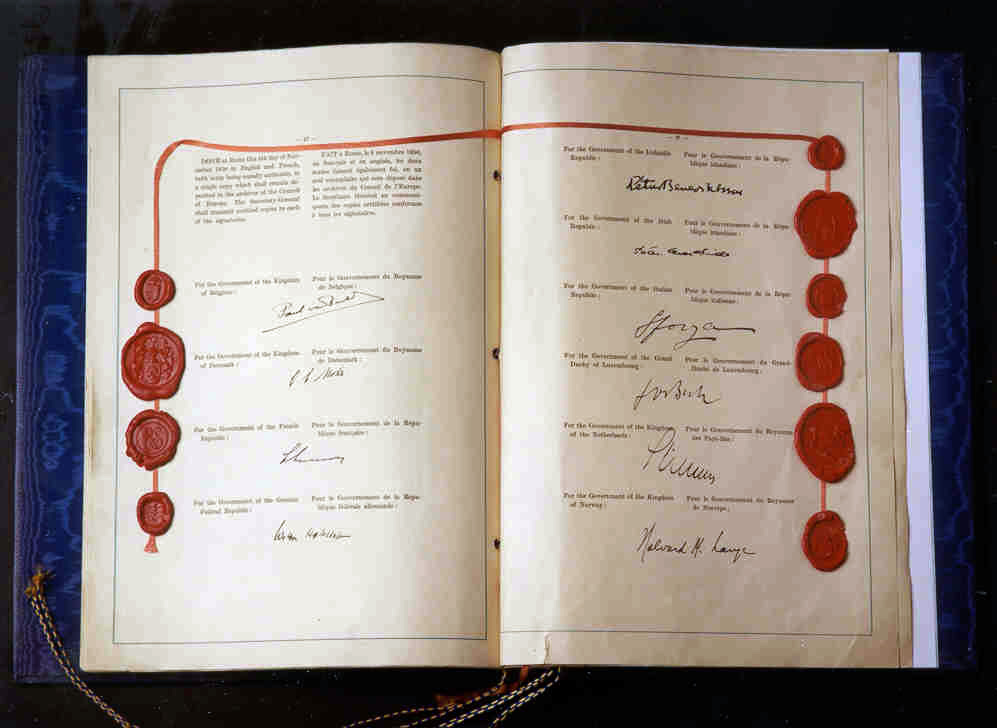 — 17 —
DONE at Rome this 4th day of Nov-
ember 1950 in English and French,
both texts being equally authentic, in
a single copy which shall remain de-
posited in the archives of the Council
of Europe. The Secretary-General
shall transmit certified copies to each
of the signatories.
FAIT à Rome, le 4 novembre 1950,
en français et en anglais, les deux
textes faisant également foi, en un
seul exemplaire qui sera déposé dans
les archives du Conseil de l'Europe.
Le Secrétaire Général en communi-
quera des copies certifiées conformes
à tous les signataires.
For the Government of the Kingdom
of Belgium :
Pour le Gouvernement du Royaume
de Belgique :
Paul van Zeeland
For the Government of the Kingdom
of Denmark :
Pour le Gouvernement du Royaume
de Danemark :
For the Government of the French
Republic :
Pour le Gouvernement de la Répu-
blique française :
For the Government of the German
Federal Republic :
Pour le Gouvernement de la Répu-
blique fédérale allemande :
Walter Hallstein
For the Government of the Icelandic
Republic :
Pour le Gouvernement de la Répu-
blique islandaise :
Pétur Benediktsson
For the Government of the Irish
Republic :
Pour le Gouvernement de la Répu-
blique irlandaise :
For the Government of the Italian
Republic :
Pour le Gouvernement de la Répu-
blique italienne :
Sforza
For the Government of the Grand
Duchy of Luxembourg :
Pour le Gouvernement du Grand-
Duché de Luxembourg :
Jos Bech
For the Government of the Kingdom
of the Netherlands :
Pour le Gouvernement du Royaume
des Pays-Bas :
Stikker
For the Government of the Kingdom
of Norway :
Pour le Gouvernement du Royaume
de Norvège :
Halvard M. Lange